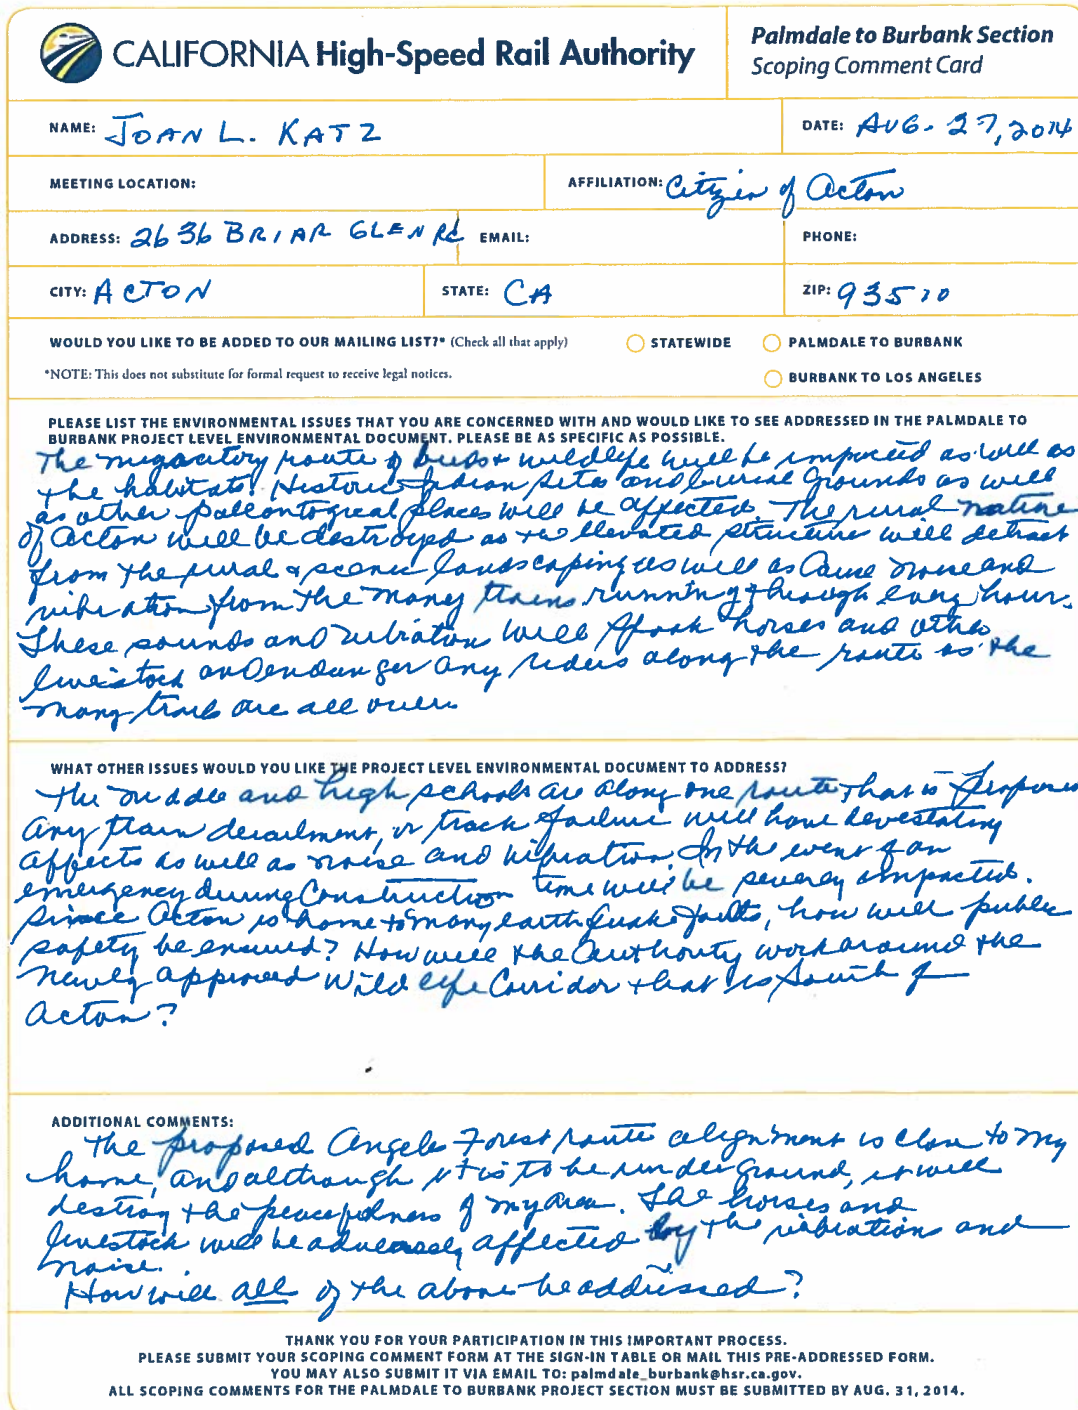 CALIFORNIA High-Speed Rail Authority
Palmdale to Burbank Section
Scoping Comment Card
NAME: JOAN L. KATZ
DATE: AUG. 27, 2014
MEETING LOCATION:
AFFILIATION: Citizen of Acton
ADDRESS: 2636 BRIAR GLEN Rd
EMAIL:
PHONE:
CITY: ACTON
STATE: CA
ZIP: 93510
WOULD YOU LIKE TO BE ADDED TO OUR MAILING LIST?* (Check all that apply)
STATEWIDE
PALMDALE TO BURBANK
*NOTE: This does not substitute for formal request to receive legal notices.
BURBANK TO LOS ANGELES
PLEASE LIST THE ENVIRONMENTAL ISSUES THAT YOU ARE CONCERNED WITH AND WOULD LIKE TO SEE ADDRESSED IN THE PALMDALE TO
BURBANK PROJECT LEVEL ENVIRONMENTAL DOCUMENT. PLEASE BE AS SPECIFIC AS POSSIBLE.
The route of birds + wildlife will be impacted as well as
the habitats. Historic Indian sites and burial grounds as well
as other places will be affected. The rural nature
of Acton will be destroyed as the elevated structure will detract
from the rural & scenic landscaping as well as cause noise and
vibration from the many trains running through every hour.
These sounds and vibrations will spook horses and other
livestock and endanger any riders along the route as the
many trails are all over.
WHAT OTHER ISSUES WOULD YOU LIKE THE PROJECT LEVEL ENVIRONMENTAL DOCUMENT TO ADDRESS?
The middle and high schools are along one route that is proposed
any train derailment, or track failure will have devestating
affects as well as noise and vibration. In the event of an
emergency during Construction time will be impacted.
Since Acton is home to many earth quake faults, how will public
safety be ensured? How will the Authority work around the
newly approved Wild life Corridor that is South of
Acton?
ADDITIONAL COMMENTS:
The proposed Angeles Forest route alignment is close to my
home, and although it is to be underground, it will
destroy the peacefulness of my area. The horses and
livestock will be adversely affected by the vibrations and
noise.
How will all of the above be addressed?
THANK YOU FOR YOUR PARTICIPATION IN THIS IMPORTANT PROCESS.
PLEASE SUBMIT YOUR SCOPING COMMENT FORM AT THE SIGN-IN TABLE OR MAIL THIS PRE-ADDRESSED FORM.
YOU MAY ALSO SUBMIT IT VIA EMAIL TO: palmdale_burbank@hsr.ca.gov.
ALL SCOPING COMMENTS FOR THE PALMDALE TO BURBANK PROJECT SECTION MUST BE SUBMITTED BY AUG. 31, 2014.